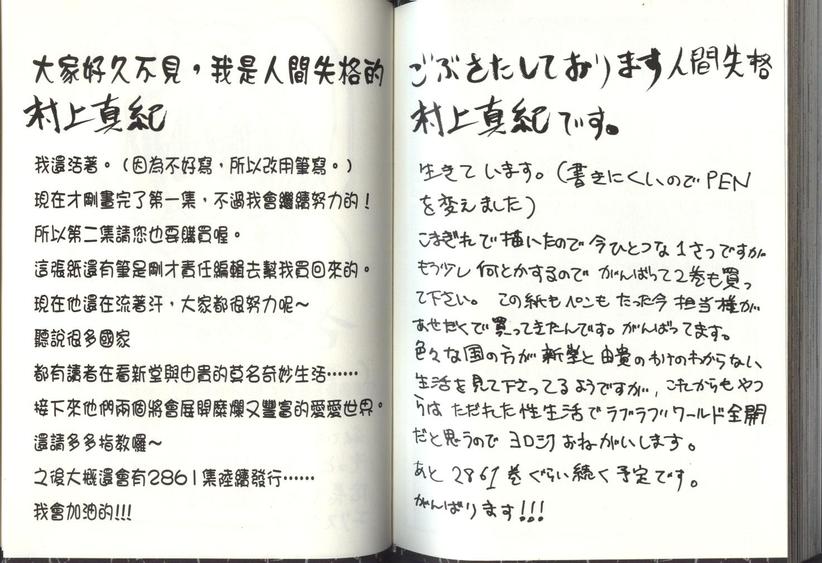 大家好久不見，我是人間失格的
村上真紀
我還活著。（因為不好寫，所以改用筆寫。）
現在才剛畫完了第一集，不過我會繼續努力的！
所以第二集請您也要購買喔。
這張紙還有筆是剛才責任編輯去幫我買回來的。
現在他還在流著汗，大家都很努力呢～
聽說很多國家
都有讀者在看新堂與由貴的莫名奇妙生活……
接下來他們兩個將會展開糜爛又豐富的愛愛世界。
還請多多指教囉～
之後大概還會有2861集陸續發行……
我會加油的!!!
ごぶさたしております人間失格
村上真紀です。
生きています。(書きにくいのでPEN
を変えました)
こまぎれで描いたので今ひとつな1さつですが
もう少し何とかするのでがんばって2巻も買っ
て下さい。この紙もペンもたった今担当様が
あせだくで買ってきたんです。がんばってます。
色々な国の方が新堂と由貴のわけのわからない
生活を見て下さってるようですが、これからもやつ
らはただれた性生活でラブラブワールド全開
だと思うので ヨロシクおねがいします。
あと 2861巻ぐらい続く予定です。
がんばります!!!